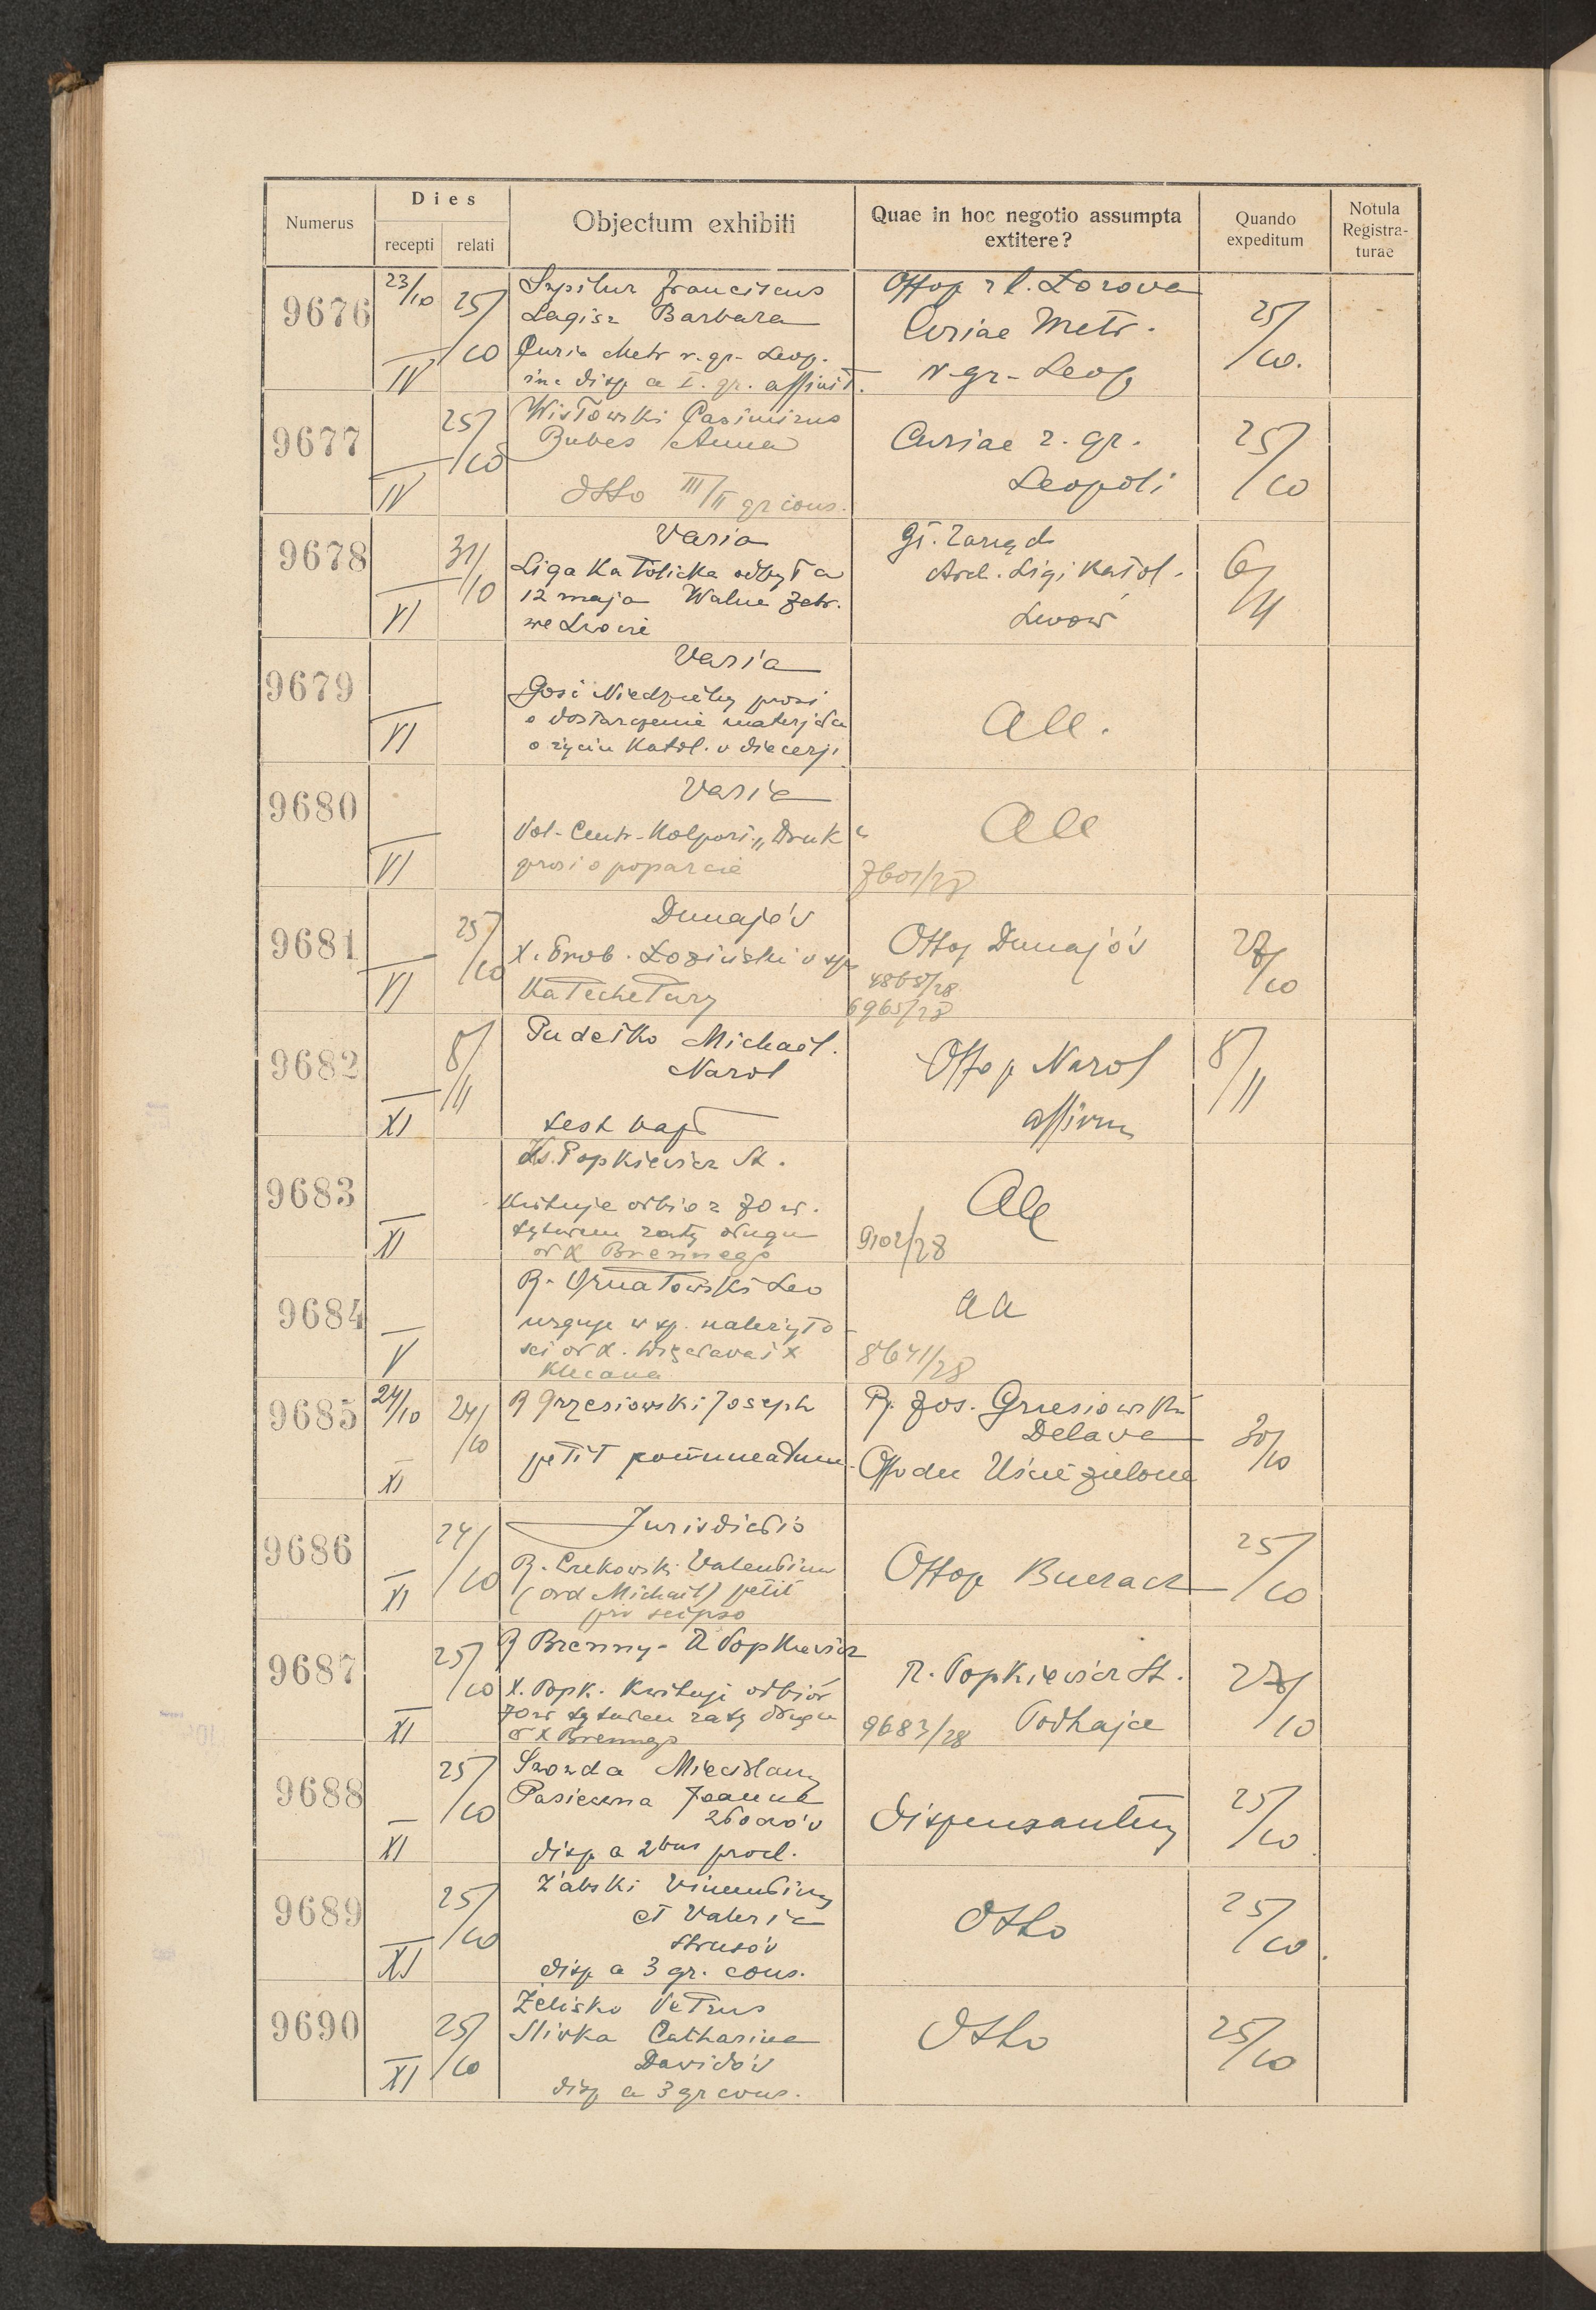 Numerus
Dies
recepti relati
Objectum exhibiti
Quae in hoc negotio assumpta
extitere?
Quando
expeditum
Notula
Registra-
turae
9676
23/10
IV
25/10
Szpitur Franciscus
Lagisz Barbara
Curia Metr r. gr. Leop.
disp a I. gr. affinit.
Offop r l.
Curiae Metr.
r. gr. Leop
25/10.
9677
IV
25/10
Wisłowski Casimirus
Bubes Anna
Otto III/II gr cons.
Curiae r. gr.
Leopoli
25/10
9678
VI
31/10
Varia
Liga Katolicka odbyła
12 maja Walne Zebr.
we Lwowie
Gł. Zarząd
Arch. Ligi Katol.
Lwów
6/11
9679
VI
Varia
Gość Niedzielny prosi
o dostarczenie materjału
o życiu Katol. w diecezji
9680
VI
Varia
Centr. Kolport. „Druk“
prosi o poparcie
7601/28
9681
VI
25/10
Dunajów
X. Prob. Łoziński w sp
Katechetury
Offop Dunajów
4868/28
6965/28
27/10
9682
XI
8/11
Pudełko Michael.
Narol
test bapt
Offop Narol
8/11
9683
XI
Ks. Popkiewicz St.
Kwituje odbiór 70 zł.
tytułem raty długu
od X Brennego
9102/28
9684
V
R. Ornatowski Leo
urguje w sp. należyto-
ści od X. i X
Klecana
aa
8641/28
9685
24/10
XI
24/10
R Grzesiowski Joseph
petit
R. Jos. Grzesiowski
Delava
Offodec Uście zielone
30/10
9686
XI
24/10
Jurisdictio
R. Valentinus
(ord Michael) petit
pro seipso
Offop
25/10
9687
XI
25/10
R Brenny - R Popkiewicz
X. Popk. Kwituje odbiór
70 zł tytułem raty długu
od X Brennego
R. Popkiewicz St.
9683/28 Podhajce
27/10
9688
XI
25/10
Miecislaus
Joanna
disp a 2bus procl.
Dispensantur
25/10
9689
XI
25/10
Żabski
et Valeria
Strusów
disp a 3 gr. cons.
Otto
25/10.
9690
XI
25/10
Żelisko Petrus
Sliwka Catharina
Dawidów
disp a 3 gr cons.
Otto
25/10